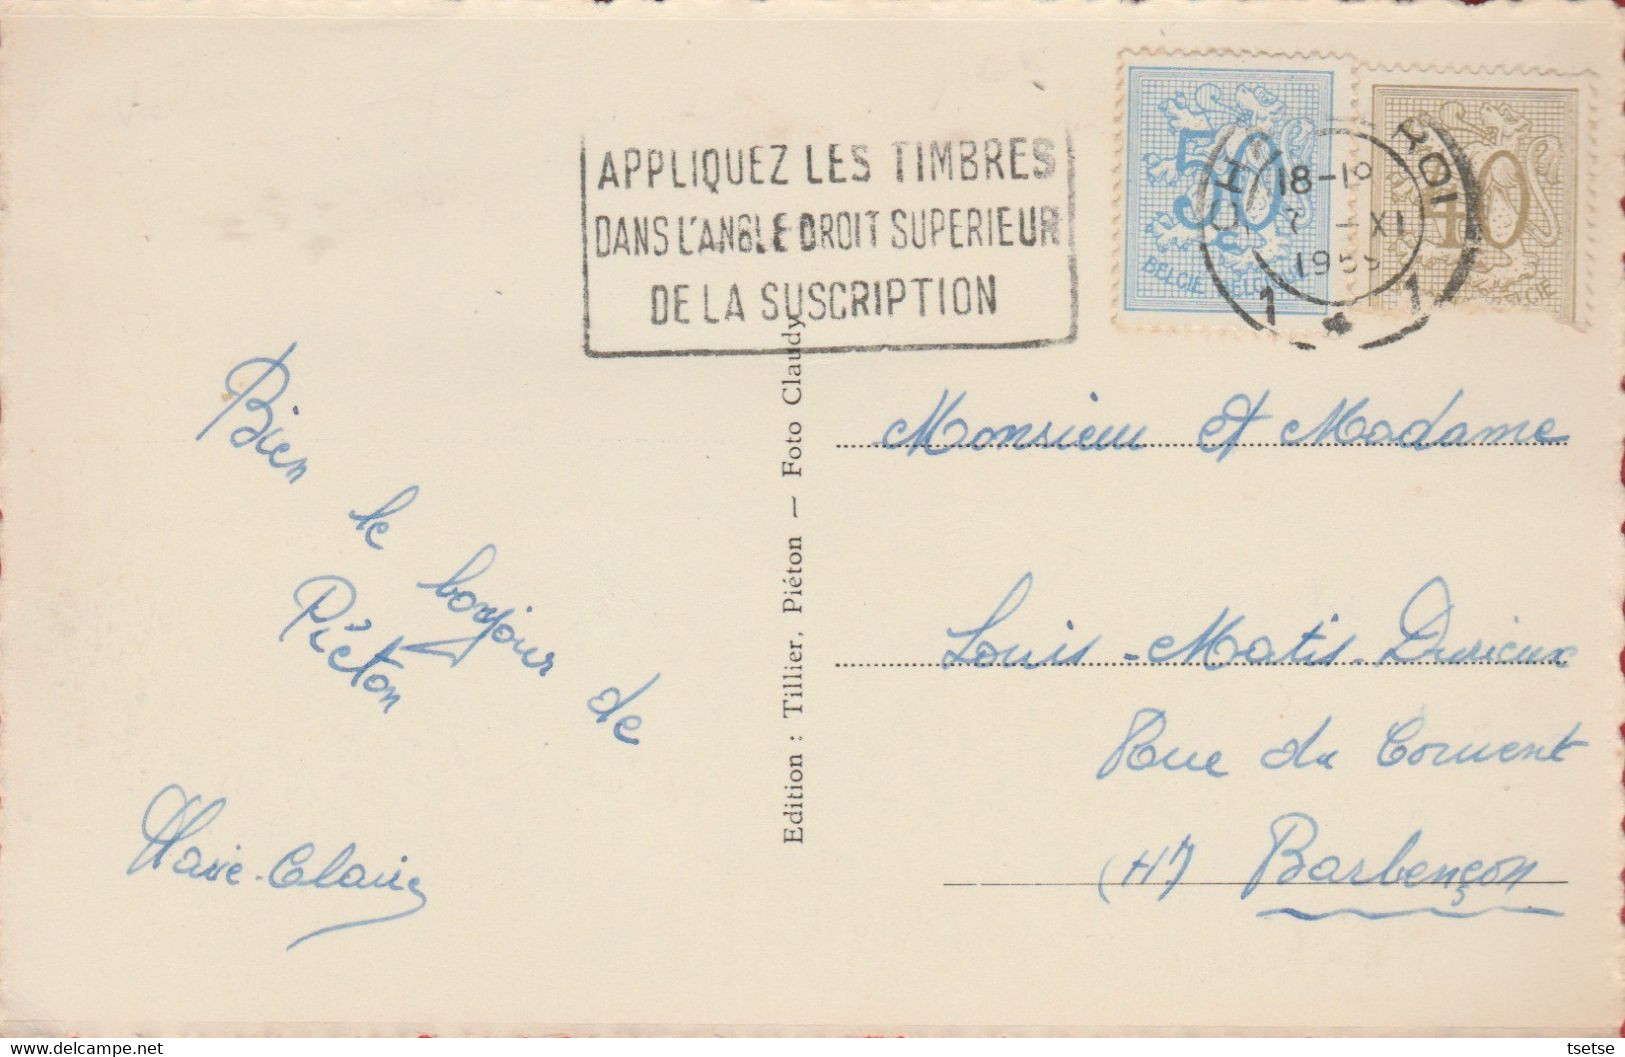 APPLIQUEZ LES TIMBRES
DANS L'ANGLE DROIT SUPERIEUR
DE LA SUSCRIPTION
50
BELGIE BELGIQUE
40
18-19
7 - XI
1955
1 * 1
Bien le bonjour de
Piéton
Marie-Claire
Edition : Tillier, Piéton — Foto Claudy
Monsieur et Madame
Louis-Matis-Durieux
Rue du Couvent
(Ht) Barbençon
tsetse